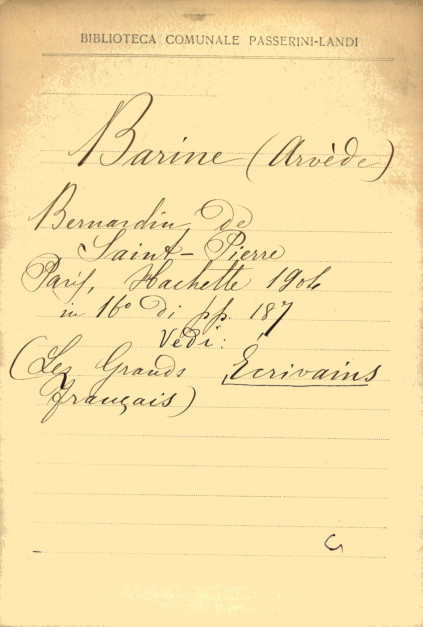 BIBLIOTECA COMUNALE PASSERINI-LANDI
Barine (Arvède)
Bernardin de
Saint-Pierre
Paris, Hachette 1904
in 16° di pp. 187
Vedi:
(Les Grands Ecrivains
français)